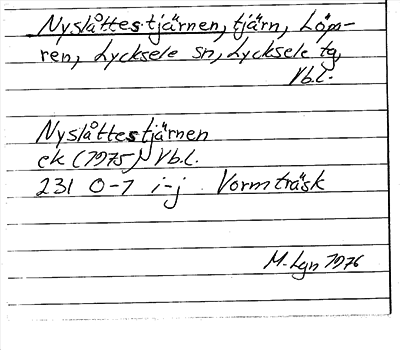 Nyslåttestjärnen, tjärn, Löm-
ren, Lycksele sn, Lycksele tg,
Vb.l.
Nyslåttestjärnen
ek (1975) Vb.l.
231 0-1 i-j Vormträsk
M. Lgn 1976